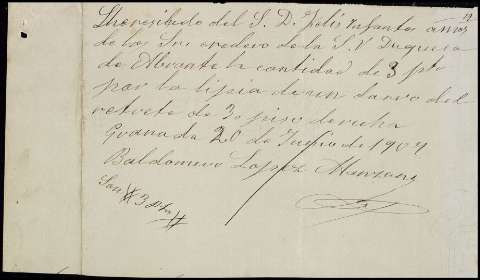 He recibido del S. D. Felix Infantes á nom
19
de los Sres eredero de la S. V Duquesa
de Abrante la cantidad de 3 pts
por la lipia de un darro del
retrete de 2o piso derecha
Granada 20 de Junio de 1904
Baldomero Lopez Manzano
Son # 3 pts #